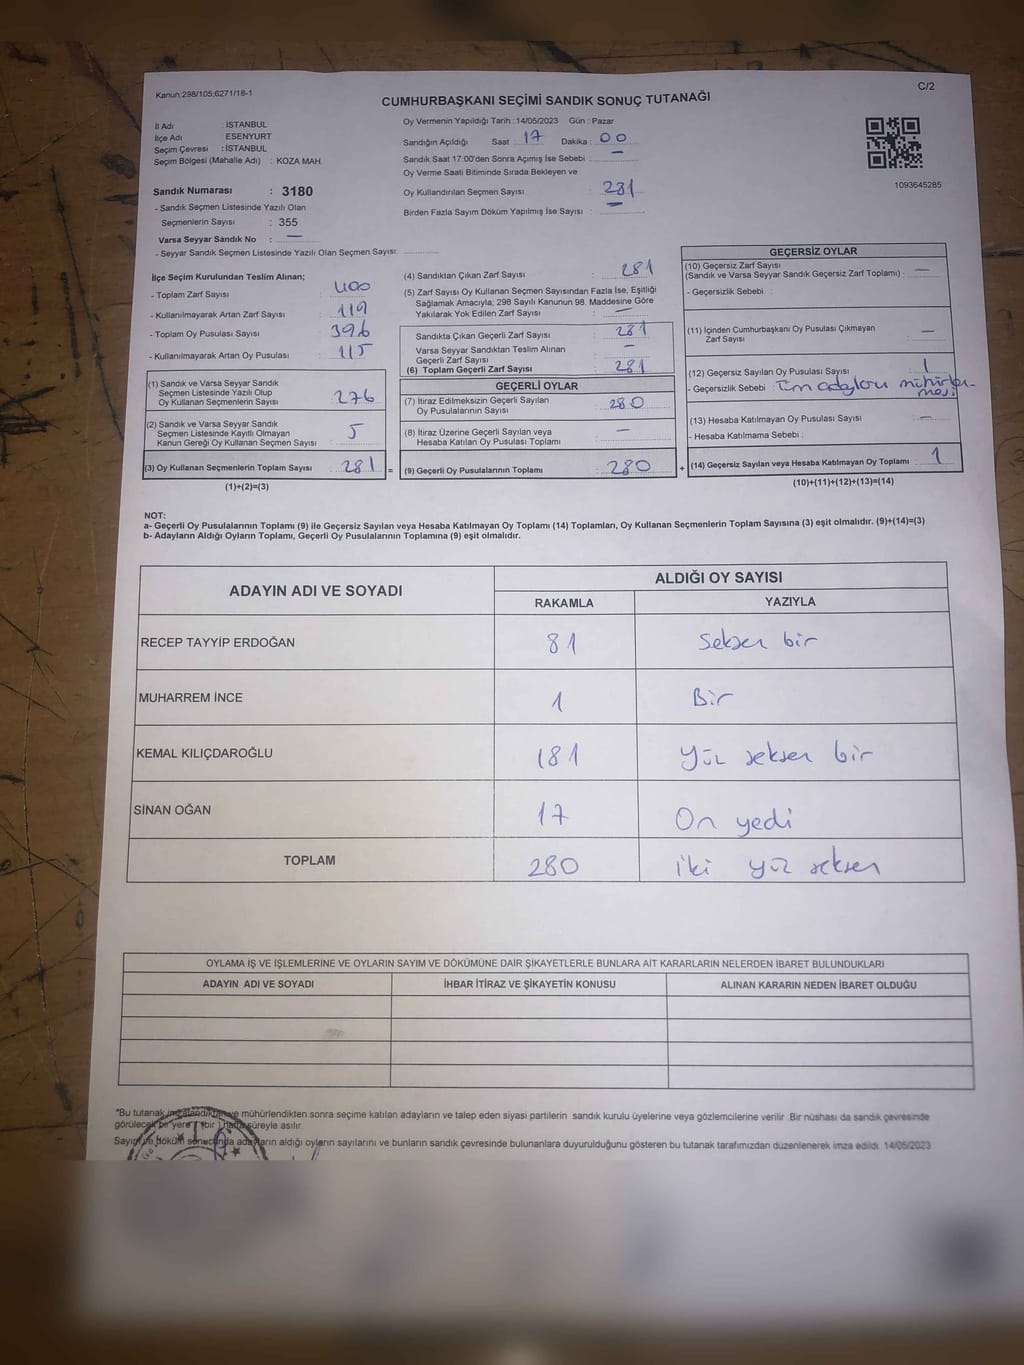 Kanun:298/105;6271/18-1
C/2
CUMHURBAŞKANI SEÇİMİ SANDIK SONUÇ TUTANAĞI
İl Adı : İSTANBUL
İlçe Adı : ESENYURT
Seçim Çevresi : İSTANBUL
Seçim Bölgesi (Mahalle Adı) : KOZA MAH.
Sandık Numarası : 3180
- Sandık Seçmen Listesinde Yazılı Olan
Seçmenlerin Sayısı : 355
Varsa Seyyar Sandık No : —
- Seyyar Sandık Seçmen Listesinde Yazılı Olan Seçmen Sayısı:
Oy Vermenin Yapıldığı Tarih :14/05/2023 Gün : Pazar
Sandığın Açıldığı Saat : 17 Dakika : 00
Sandık Saat 17:00'den Sonra Açımış İse Sebebi : —
Oy Verme Saati Bitiminde Sırada Bekleyen ve
Oy Kullandırılan Seçmen Sayısı : 281
Birden Fazla Sayım Döküm Yapılmış İse Sayısı : —
1093645285
İlçe Seçim Kurulundan Teslim Alınan;
- Toplam Zarf Sayısı : 400
- Kullanılmayarak Artan Zarf Sayısı : 119
- Toplam Oy Pusulası Sayısı : 396
- Kullanılmayarak Artan Oy Pusulası : 115
(1) Sandık ve Varsa Seyyar Sandık
Seçmen Listesinde Yazılı Olup
Oy Kullanan Seçmenlerin Sayısı : 276
(2) Sandık ve Varsa Seyyar Sandık
Seçmen Listesinde Kayıtlı Olmayan
Kanun Gereği Oy Kullanan Seçmen Sayısı : 5
(3) Oy Kullanan Seçmenlerin Toplam Sayısı : 281 =
(1)+(2)=(3)
(4) Sandıktan Çıkan Zarf Sayısı : 281
(5) Zarf Sayısı Oy Kullanan Seçmen Sayısından Fazla İse, Eşitliği
Sağlamak Amacıyla; 298 Sayılı Kanunun 98. Maddesine Göre
Yakılarak Yok Edilen Zarf Sayısı : —
Sandıkta Çıkan Geçerli Zarf Sayısı : 281
Varsa Seyyar Sandıktan Teslim Alınan
Geçerli Zarf Sayısı : —
(6) Toplam Geçerli Zarf Sayısı : 281
GEÇERLİ OYLAR
(7) İtiraz Edilmeksizin Geçerli Sayılan
Oy Pusulalarının Sayısı : 280
(8) İtiraz Üzerine Geçerli Sayılan veya
Hesaba Katılan Oy Pusulası Toplamı : —
(9) Geçerli Oy Pusulalarının Toplamı : 280 +
GEÇERSİZ OYLAR
(10) Geçersiz Zarf Sayısı
(Sandık ve Varsa Seyyar Sandık Geçersiz Zarf Toplamı) : —
- Geçersizlik Sebebi :
(11) İçinden Cumhurbaşkanı Oy Pusulası Çıkmayan
Zarf Sayısı : —
(12) Geçersiz Sayılan Oy Pusulası Sayısı : 1
- Geçersizlik Sebebi : Tüm adayları
(13) Hesaba Katılmayan Oy Pusulası Sayısı : —
- Hesaba Katılmama Sebebi :
(14) Geçersiz Sayılan veya Hesaba Katılmayan Oy Toplamı : 1
(10)+(11)+(12)+(13)=(14)
NOT:
a- Geçerli Oy Pusulalarının Toplamı (9) ile Geçersiz Sayılan veya Hesaba Katılmayan Oy Toplamı (14) Toplamları, Oy Kullanan Seçmenlerin Toplam Sayısına (3) eşit olmalıdır. (9)+(14)=(3)
b- Adayların Aldığı Oyların Toplamı, Geçerli Oy Pusulalarının Toplamına (9) eşit olmalıdır.
ADAYIN ADI VE SOYADI
ALDIĞI OY SAYISI
RAKAMLA YAZIYLA
RECEP TAYYİP ERDOĞAN 81 Seksen bir
MUHARREM İNCE 1 Bir
KEMAL KILIÇDAROĞLU 181 Yüz seksen bir
SİNAN OĞAN 17 On yedi
TOPLAM 280 iki yüz seksen
OYLAMA İŞ VE İŞLEMLERİNE VE OYLARIN SAYIM VE DÖKÜMÜNE DAİR ŞİKAYETLERLE BUNLARA AİT KARARLARIN NELERDEN İBARET BULUNDUKLARI
ADAYIN ADI VE SOYADI İHBAR İTİRAZ VE ŞİKAYETİN KONUSU ALINAN KARARIN NEDEN İBARET OLDUĞU
*Bu tutanak imzalandıktan ve mühürlendikten sonra seçime katılan adayların ve talep eden siyasi partilerin sandık kurulu üyelerine veya gözlemcilerine verilir. Bir nüshası da sandık çevresinde
görülecek bir yere 1 (bir) hafta süreyle asılır.
Sayım ve döküm sonucunda adayların aldığı oyların sayılarını ve bunların sandık çevresinde bulunanlara duyurulduğunu gösteren bu tutanak tarafımızdan düzenlenerek imza edildi. 14/05/2023